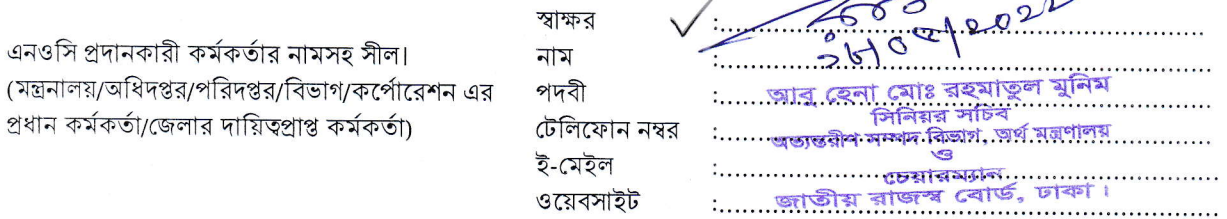 স্বাক্ষর :
এনওসি প্রদানকারী কর্মকর্তার নামসহ সীল।
(মন্ত্রনালয়/অধিদপ্তর/পরিদপ্তর/বিভাগ/কর্পোরেশন এর
প্রধান কর্মকর্তা/জেলার দায়িত্বপ্রাপ্ত কর্মকর্তা)
নাম :
পদবী :
টেলিফোন নম্বর :
ই-মেইল :
ওয়েবসাইট :
আবু হেনা মোঃ রহমাতুল মুনিম
সিনিয়র সচিব
অভ্যন্তরীণ সম্পদ বিভাগ, অর্থ মন্ত্রণালয়
ও
চেয়ারম্যান
জাতীয় রাজস্ব বোর্ড, ঢাকা।